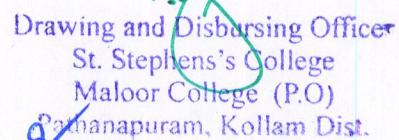 Drawing and Disbursing Officer
St. Stephens's College
Maloor College (P.O)
Pathanapuram, Kollam Dist.